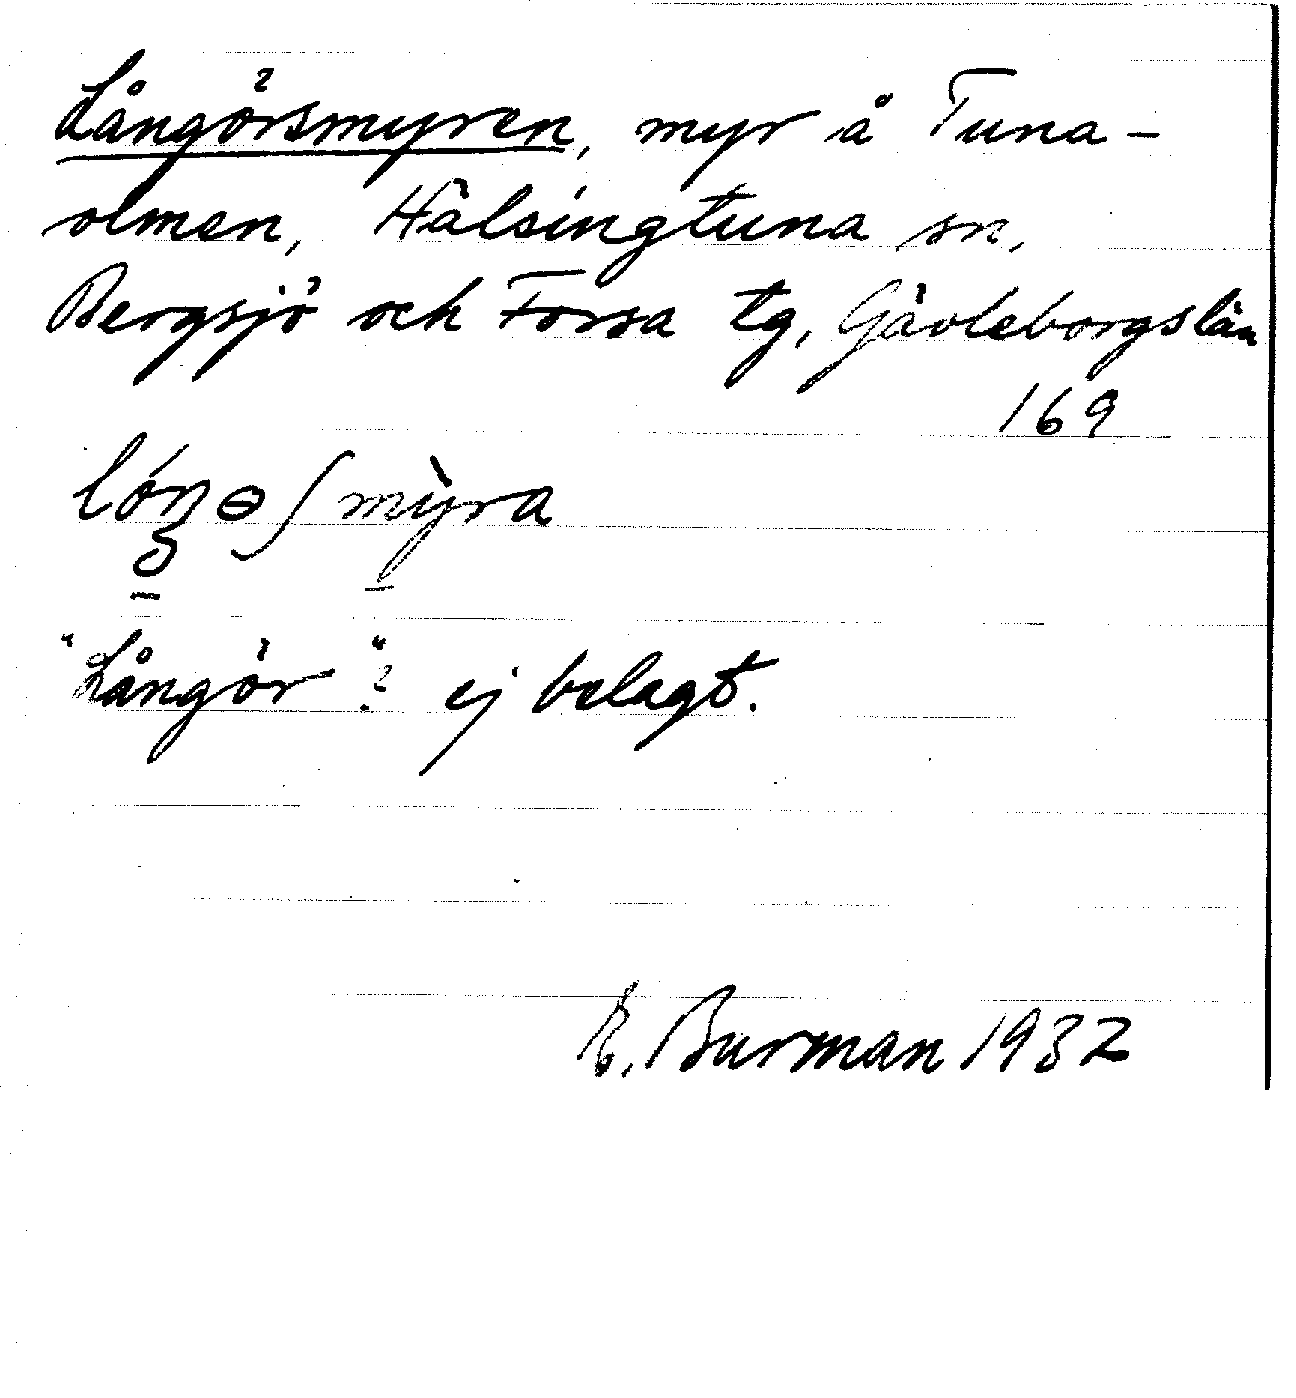 Långörsmyren, myr å Tuna-
olmen, Hälsingtuna sn,
Bergsjö och Forsa tg, Gävleborgs län
169
"Långör"? ej belagt.
E. Burman 1932